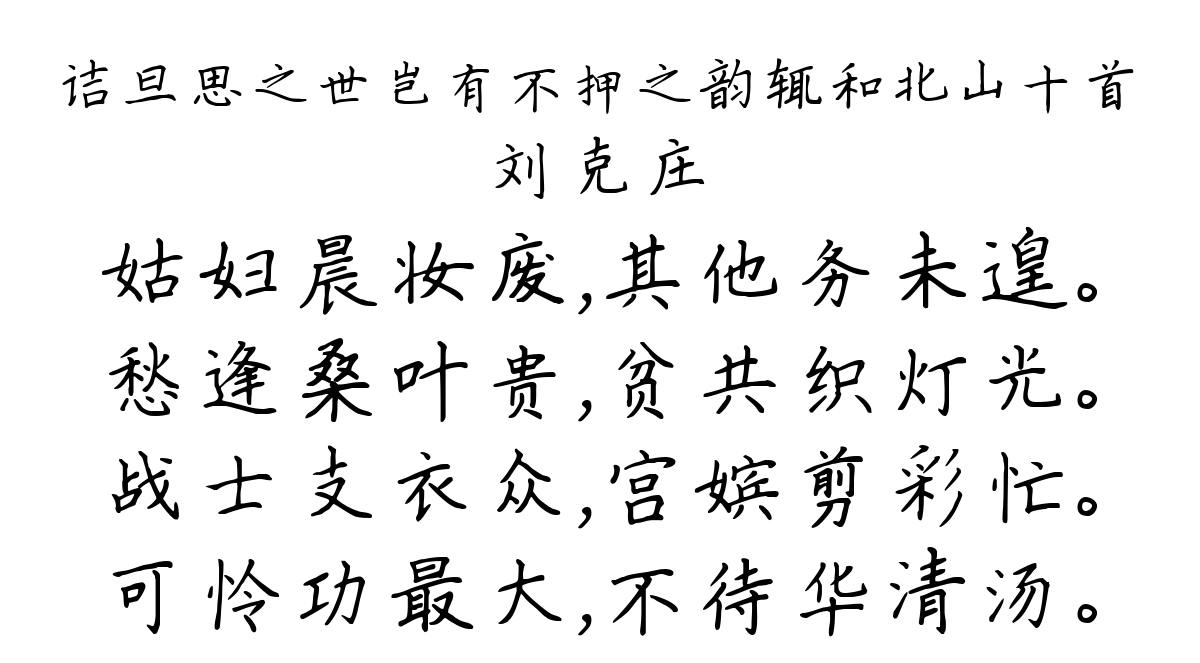 诘旦思之世岂有不押之韵辄和北山十首
刘克庄
姑妇晨妆废,其他务未遑。
愁逢桑叶贵,贫共织灯光。
战士支衣众,宫嫔剪彩忙。
可怜功最大,不待华清汤。